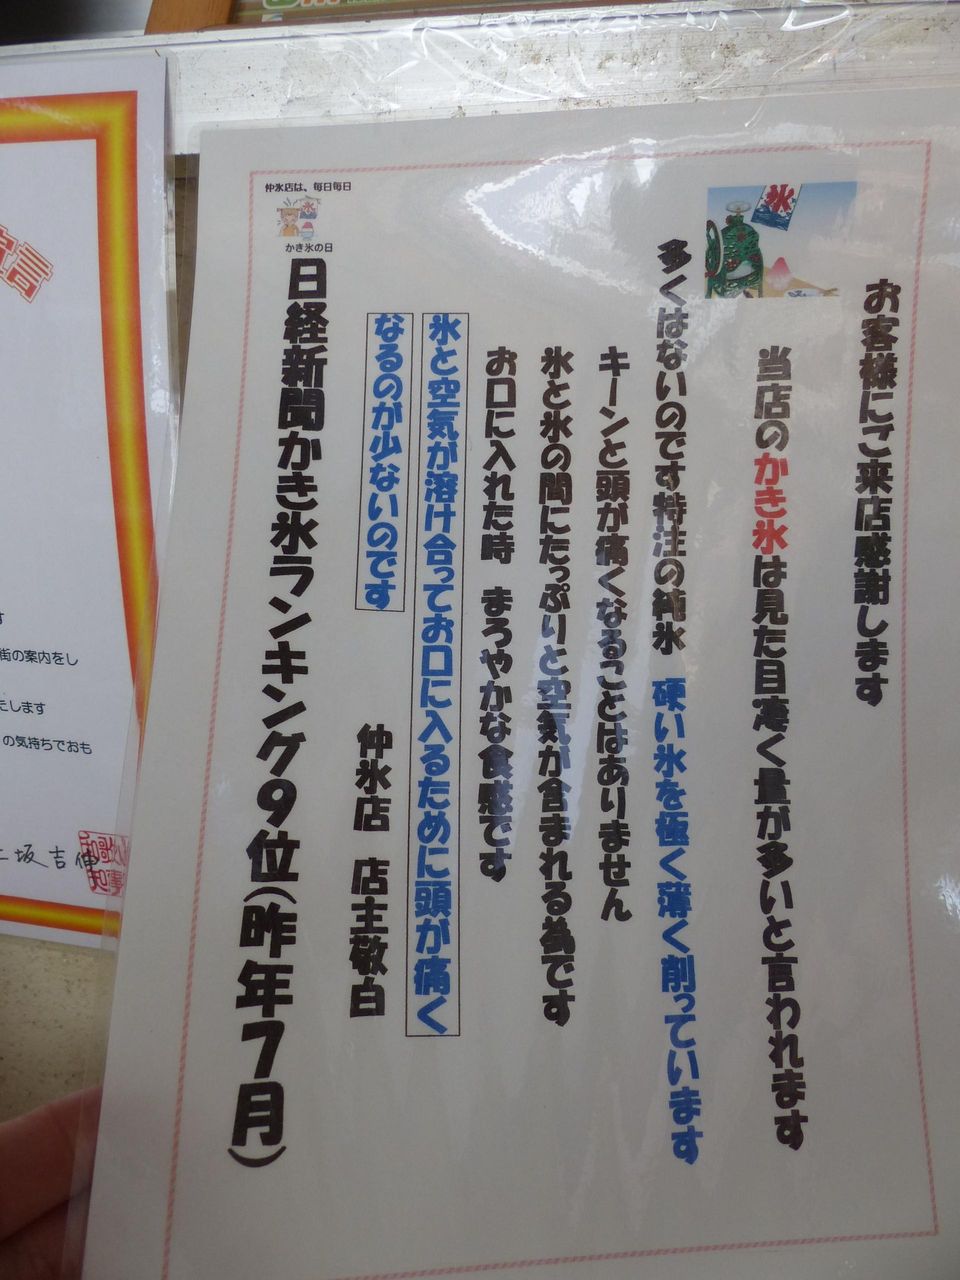 お客様にご来店感謝します
当店のかき氷は見た目凄く量が多いと言われます
多くはないのです特注の純氷 硬い氷を極く薄く削っています
キーンと頭が痛くなることはありません
氷と氷の間にたっぷりと空気が含まれる為です
お口に入れた時 まろやかな食感です
氷と空気が溶け合ってお口に入るために頭が痛く
なるのが少ないのです
仲氷店 店主敬白
日経新聞かき氷ランキング9位(昨年7月)
仲氷店は、毎日毎日
氷
かき氷の日
氷
宣言
す
街の案内をし
たします
の気持ちでおも
坂吉伸